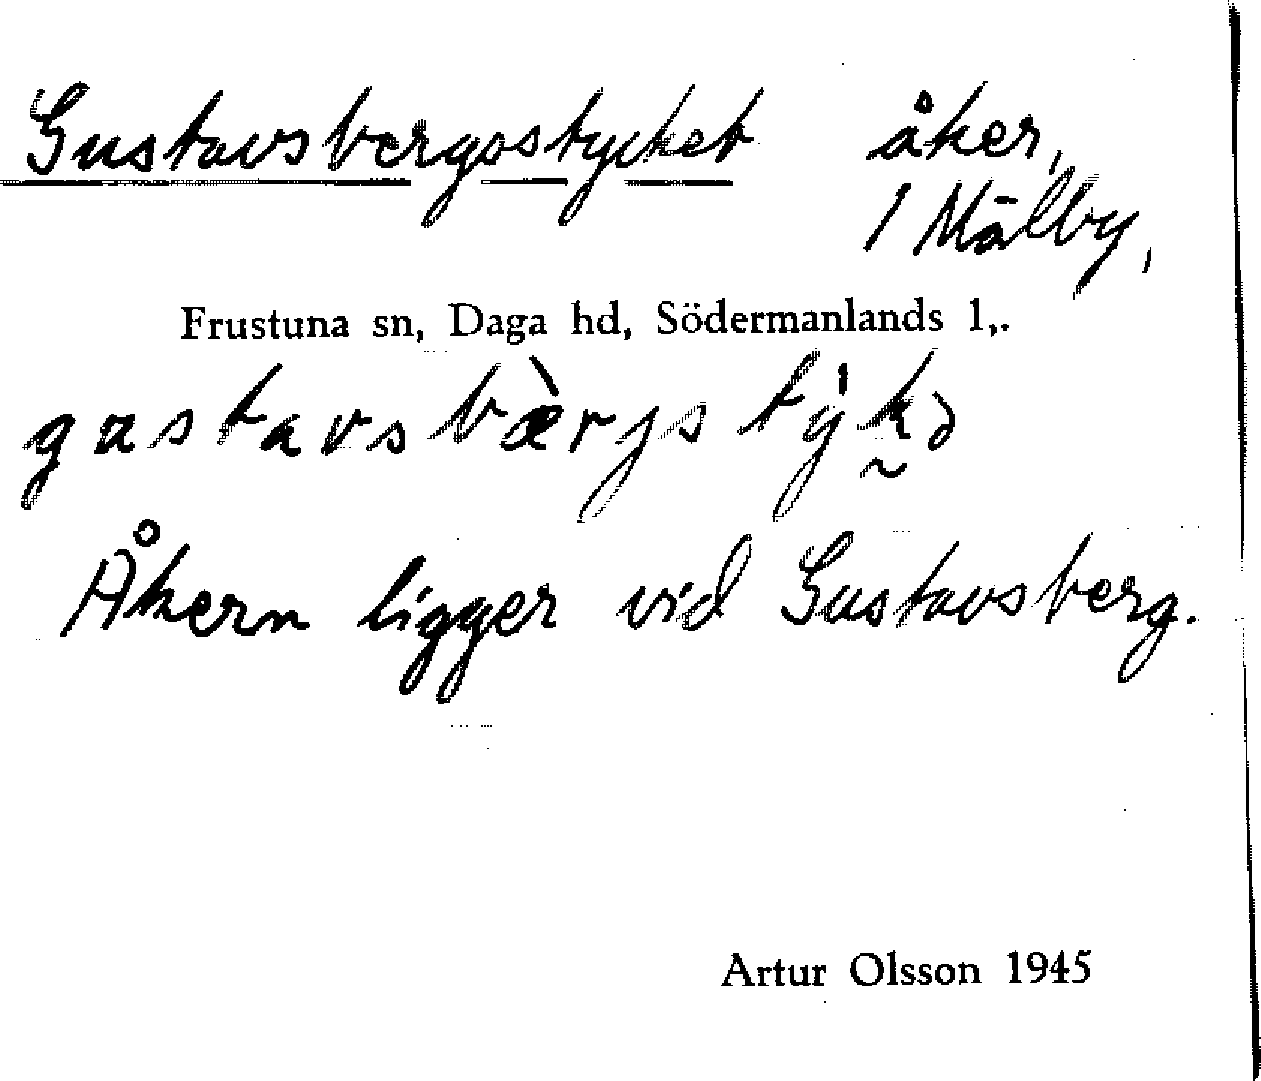 Gustavsbergsstycket åker,
1 Mälby,
Frustuna sn, Daga hd, Södermanlands l,.
gustavsbæ̀rjstẏk̰ə
Åkern ligger vid Gustavsberg.
Artur Olsson 1945